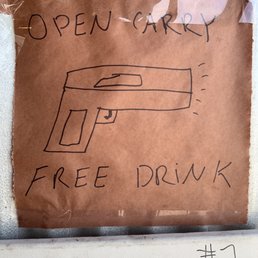 OPEN CARRY
FREE DRINK
#7